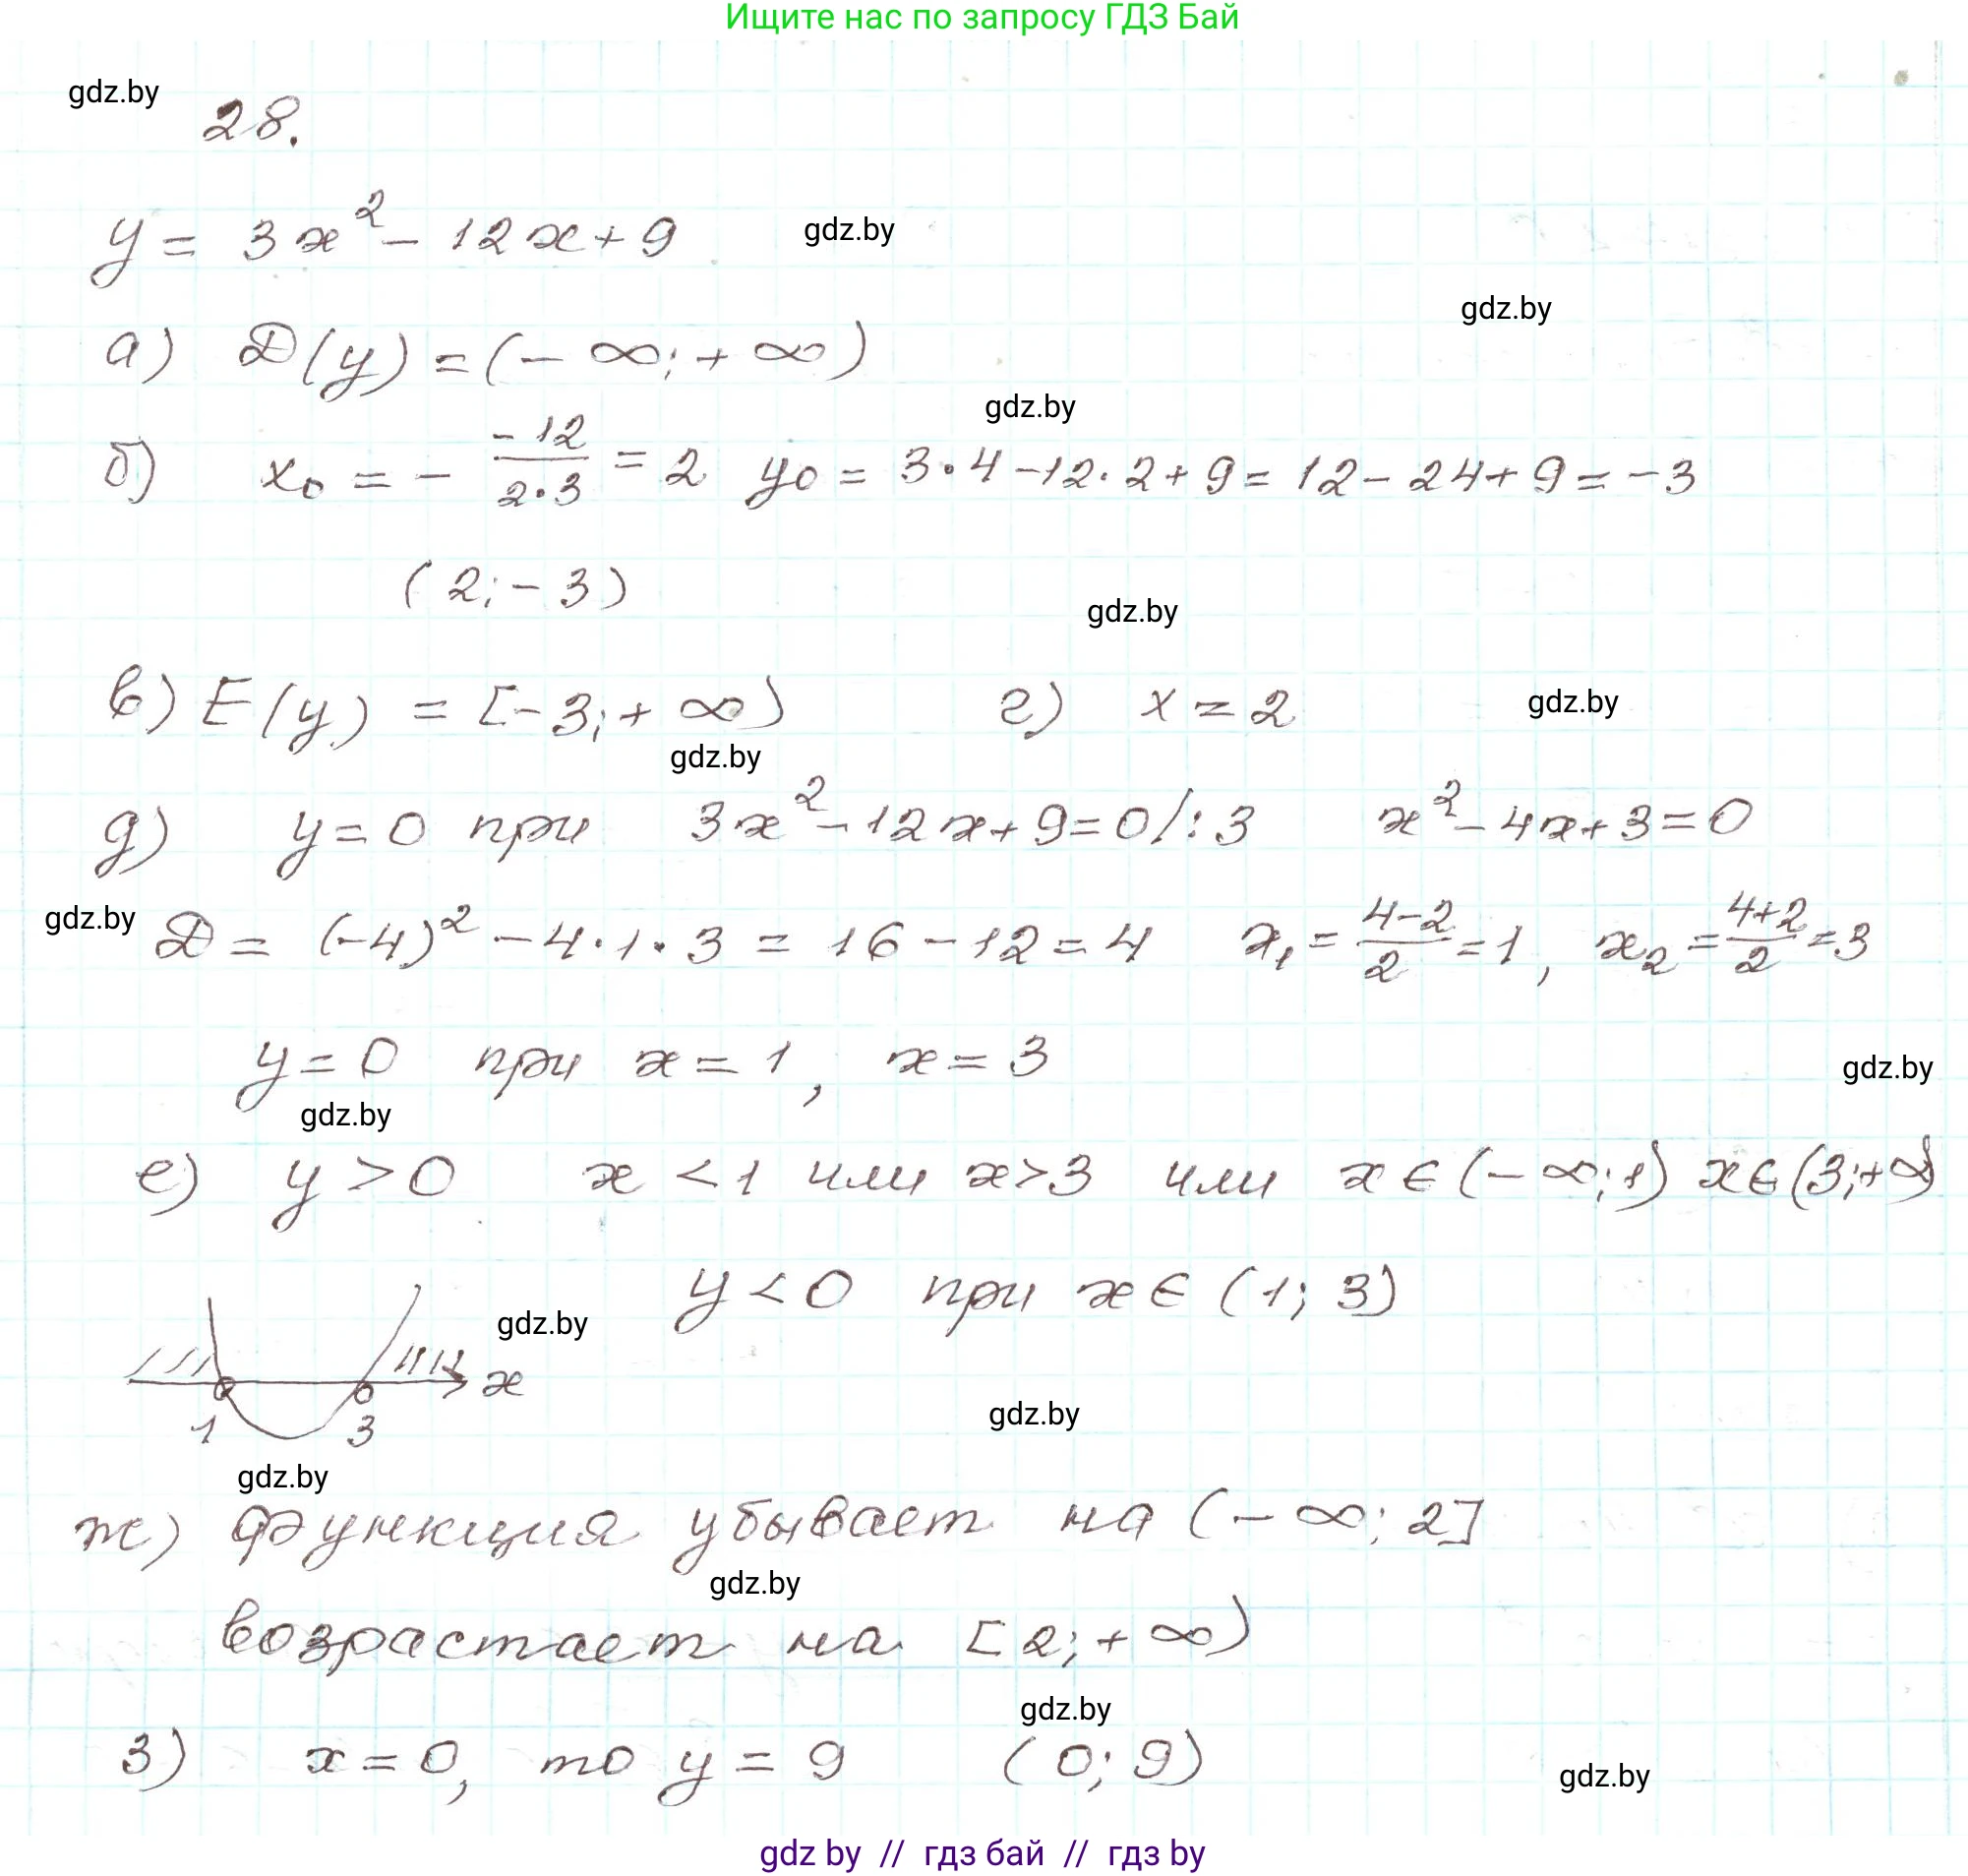 Ищите нас по запросу ГДЗ Бай
gdz.by
28.
y = 3x² - 12x + 9 gdz.by
gdz.by
а) D(y) = (- ∞; + ∞)
gdz.by
б) x₀ = - \frac{-12}{2·3} = 2 y₀ = 3·4 - 12·2 + 9 = 12 - 24 + 9 = -3
(2; - 3)
gdz.by
в) E(y) = [-3; + ∞) г) x = 2 gdz.by
gdz.by
д) y = 0 при 3x² - 12x + 9 = 0 /: 3 x² - 4x + 3 = 0
gdz.by D = (-4)² - 4·1·3 = 16 - 12 = 4 x₁ = \frac{4-2}{2} = 1, x₂ = \frac{4+2}{2} = 3
y = 0 при x = 1, x = 3
gdz.by
gdz.by
е) y > 0 x < 1 или x > 3 или x ∈ (- ∞; 1) x ∈ (3; + ∞)
y < 0 при x ∈ (1; 3)
gdz.by
x
1 3
gdz.by
gdz.by
ж) функция убывает на (- ∞; 2]
gdz.by
возрастает на [2; + ∞)
gdz.by
з) x = 0, то y = 9 (0; 9)
gdz.by
gdz by // гдз бай // гдз by